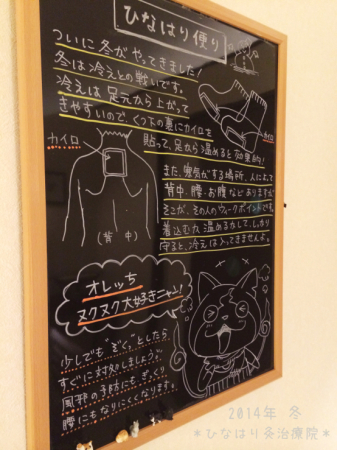 ひなはり便り
ついに冬がやってきました!
冬は冷えとの戦いです。
冷えは足元から上がって
きやすいので、くつ下の裏にカイロを
貼って、足から温めると効果的!
カイロ
カイロ
(背中)
また、寒気がする場所、人によって
背中、腰・お腹などありますが
そこが、その人のウィークポイントです。
着込むか温めるかして、しっかり
守ると、冷えは入ってきませんよ。
オレっち
ヌクヌク大好きニャン!
少しでも"ぞくっ"としたら
すぐに対処しましょう♪
風邪の予防にも、ぎっくり
腰にもなりにくくなります。
2014年 冬
*ひなはり灸治療院*